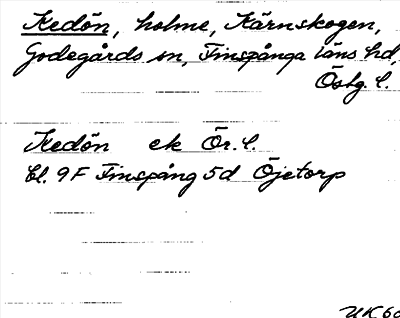 Kedön, holme, Kärnskogen,
Godegårds sn, Finspånga läns hd,
Östg. l.
Kedön ek Ör. l.
bl. 9F Finspång 5d Öjetorp
UK 60